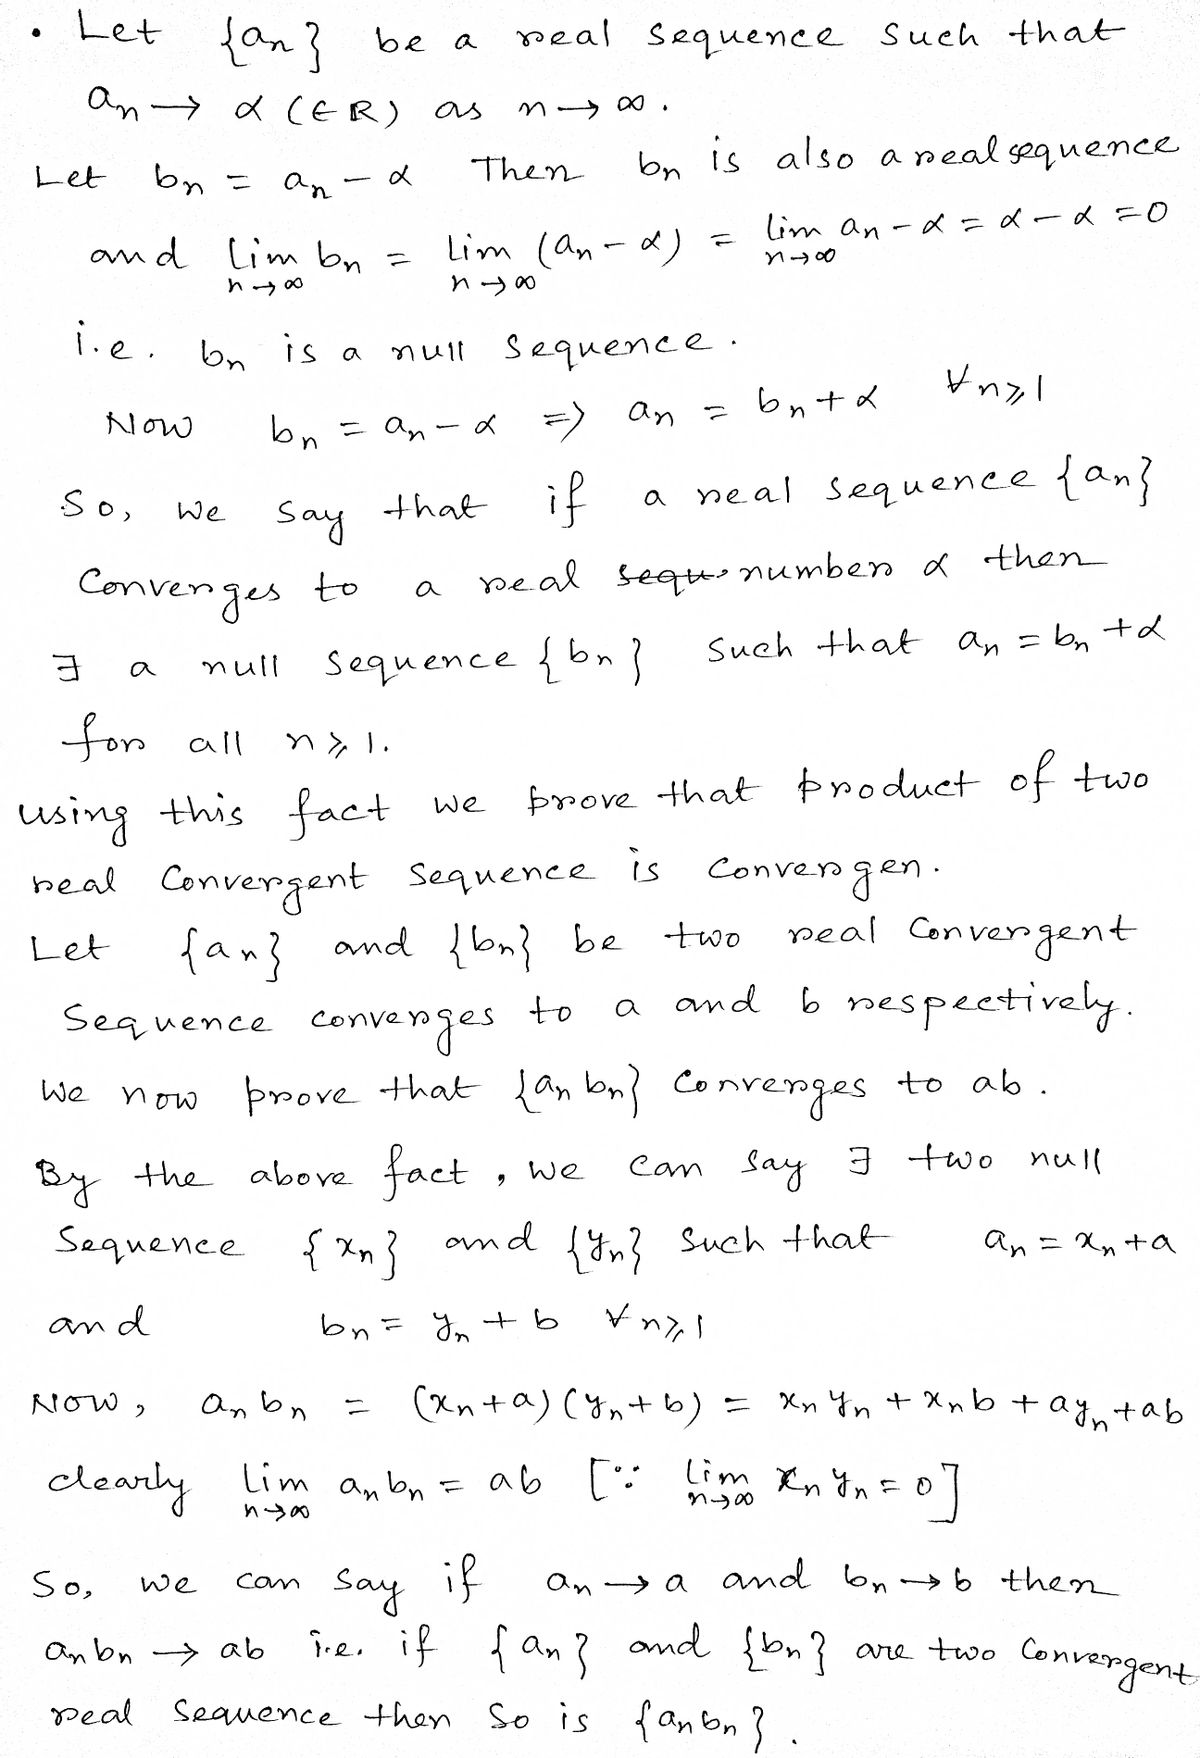 • Let {aₙ} be a real sequence such that
aₙ → α (∈ R) as n → ∞.
Let bₙ = aₙ - α Then bₙ is also a real sequence
and lim_{n→∞} bₙ = lim_{n→∞} (aₙ - α) = lim_{n→∞} aₙ - α = α - α = 0
i.e. bₙ is a null sequence.
Now bₙ = aₙ - α => aₙ = bₙ + α ∀ n ⩾ 1
So, we say that if a real sequence {aₙ}
converges to a real ~~sequ~~ number α then
∃ a null sequence {bₙ} such that aₙ = bₙ + α
for all n ⩾ 1.
using this fact we prove that product of two
real Convergent sequence is convergen.
Let {aₙ} and {bₙ} be two real Convergent
Sequence converges to a and b respectively.
We now prove that {aₙ bₙ} converges to ab.
By the above fact, we can say ∃ two null
Sequence {xₙ} and {yₙ} such that aₙ = xₙ + a
and bₙ = yₙ + b ∀ n ⩾ 1
Now, aₙ bₙ = (xₙ + a) (yₙ + b) = xₙ yₙ + xₙ b + a yₙ + ab
clearly lim_{n→∞} aₙ bₙ = ab [∵ lim_{n→∞} xₙ yₙ = 0]
So, we can say if aₙ → a and bₙ → b then
aₙ bₙ → ab i.e. if {aₙ} and {bₙ} are two Convergent
real Sequence then So is {aₙ bₙ}.